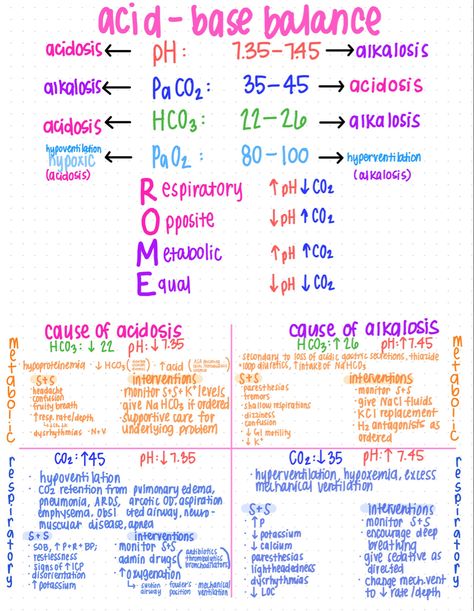 acid-base balance
acidosis ← pH: 7.35-7.45 → alkalosis
alkalosis ← PaCO2: 35-45 → acidosis
acidosis ← HCO3: 22-26 → alkalosis
hypoventilation
hypoxic ← PaO2: 80-100 → hyperventilation
(acidosis) (alkalosis)
Respiratory ↑pH ↓CO2
Opposite ↓pH ↑CO2
Metabolic ↑pH ↑CO2
Equal ↓pH ↓CO2
metabolic
cause of acidosis
HCO3: ↓22 pH: ↓7.35
· hypoproteinemia · ↓HCO3 · ↑acid
S+S
· headache
· confusion
· fruity breath
· ↑resp. rate/depth
· dysrhythmias · N+V
interventions
· monitor S+S+K+ levels
· give NaHCO3 if ordered
· supportive care for
underlying problem
cause of alkalosis
HCO3: ↑26 pH: ↑7.45
· secondary to loss of acidic gastric secretions, thiazide
+ loop diuretics, ↑intake of NaHCO3
S+S
· paresthesias
· tremors
· shallow respirations
· dizziness
· confusion
· ↓GI motility
· ↓K+
interventions
· monitor S+S
· give NaCl fluids
· KCl replacement
· H2 antagonists as
ordered
respiratory
CO2: ↑45 pH: ↓7.35
· hypoventilation
· CO2 retention from pulmonary edema,
pneumonia, ARDS, narcotic OD, aspiration
emphysema, obstructed airway, neuro-
muscular disease, apnea
S+S
· SOB, ↑P+R+BP;
· restlessness
· signs of ↑ICP
· disorientation
· ↑potassium
interventions
· monitor S+S
· admin drugs (antibiotics
thrombolytics
bronchodilators)
· ↑oxygenation
↳ suction · fowler's position · mechanical ventilation
airway
CO2: ↓35 pH: ↑7.45
· hyperventilation, hypoxemia, excess
mechanical ventilation
S+S
· ↑P
· ↓potassium
· ↓calcium
· paresthesias
· lightheadedness
· dysrhythmias
· ↓LOC
interventions
· monitor S+S
· encourage deep
breathing
· give sedative as
directed
· change mech. vent
to ↓rate/depth